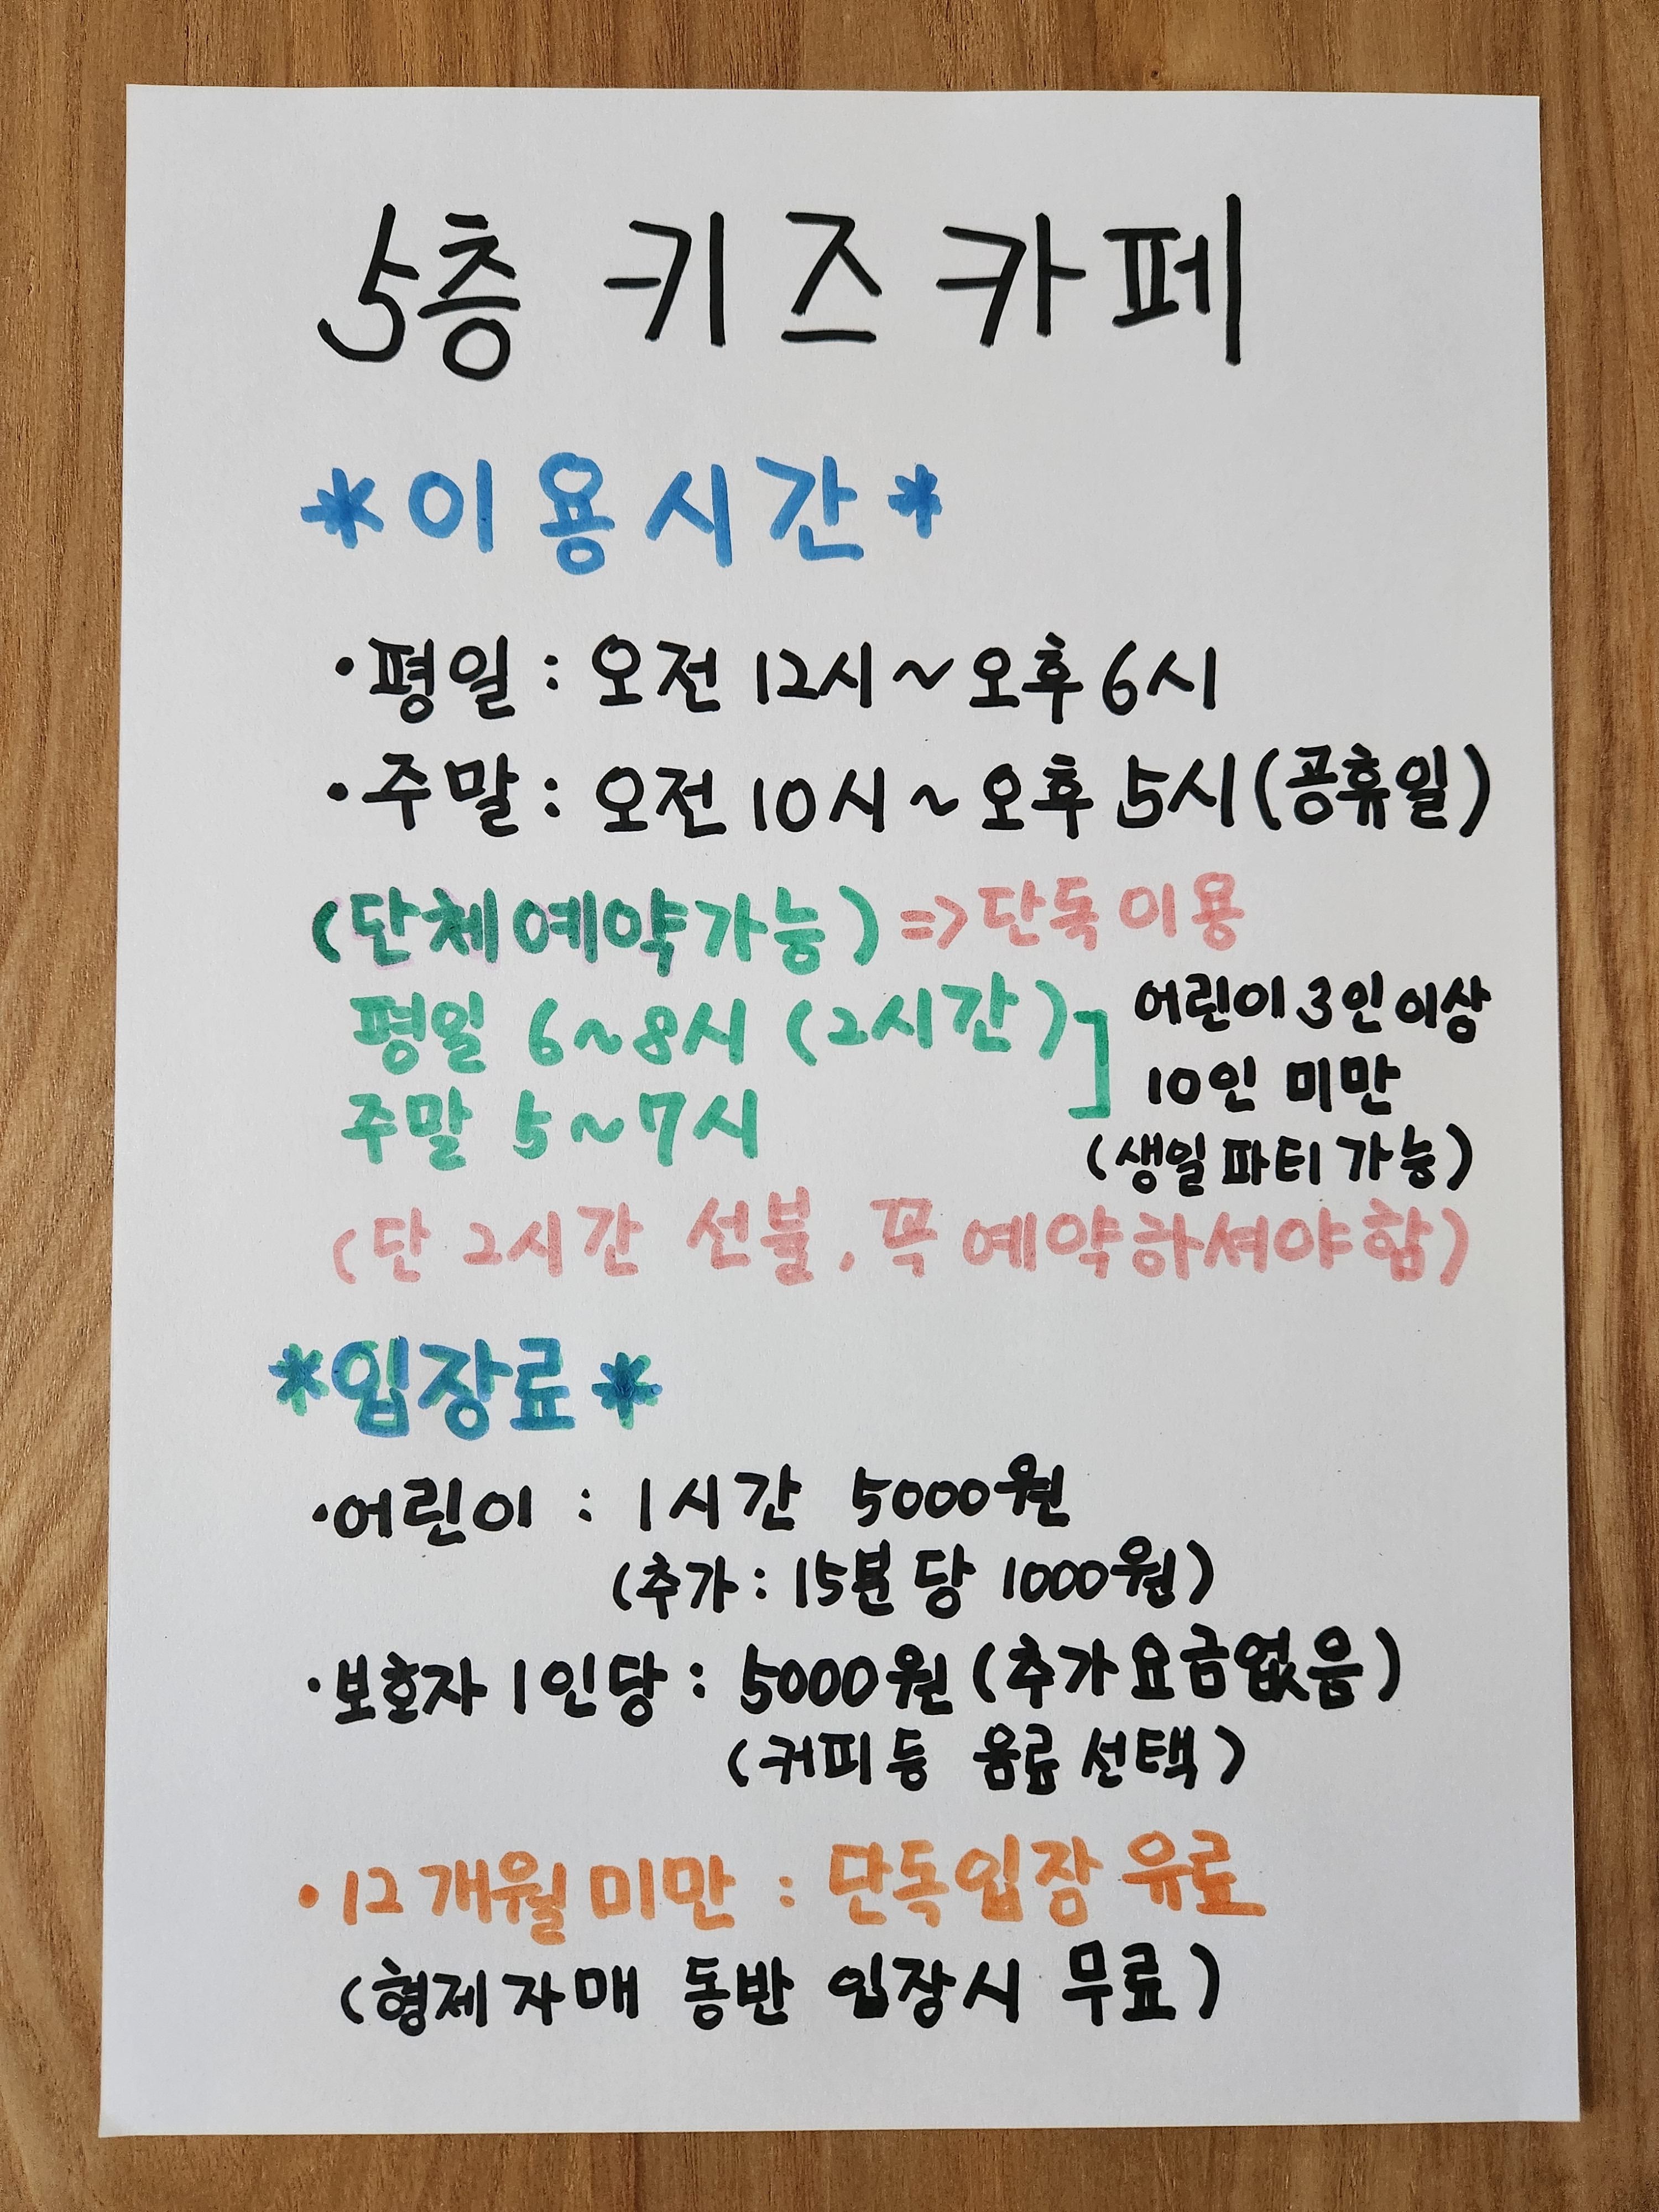 5층 키즈카페
*이용시간*
·평일 : 오전 12시~오후 6시
·주말 : 오전 10시~오후 5시(공휴일)
(단체예약가능) => 단독이용
평일 6~8시 (2시간)] 어린이 3인이상
10인 미만
주말 5~7시
(생일파티가능)
(단 2시간 선불. 꼭 예약하셔야함)
*입장료*
·어린이 : 1시간 5000원
(추가 : 15분당 1000원)
·보호자 1인당 : 5000원 (추가요금없음)
(커피등 음료선택)
·12개월미만 : 단독입장 유료
(형제자매 동반 입장시 무료)